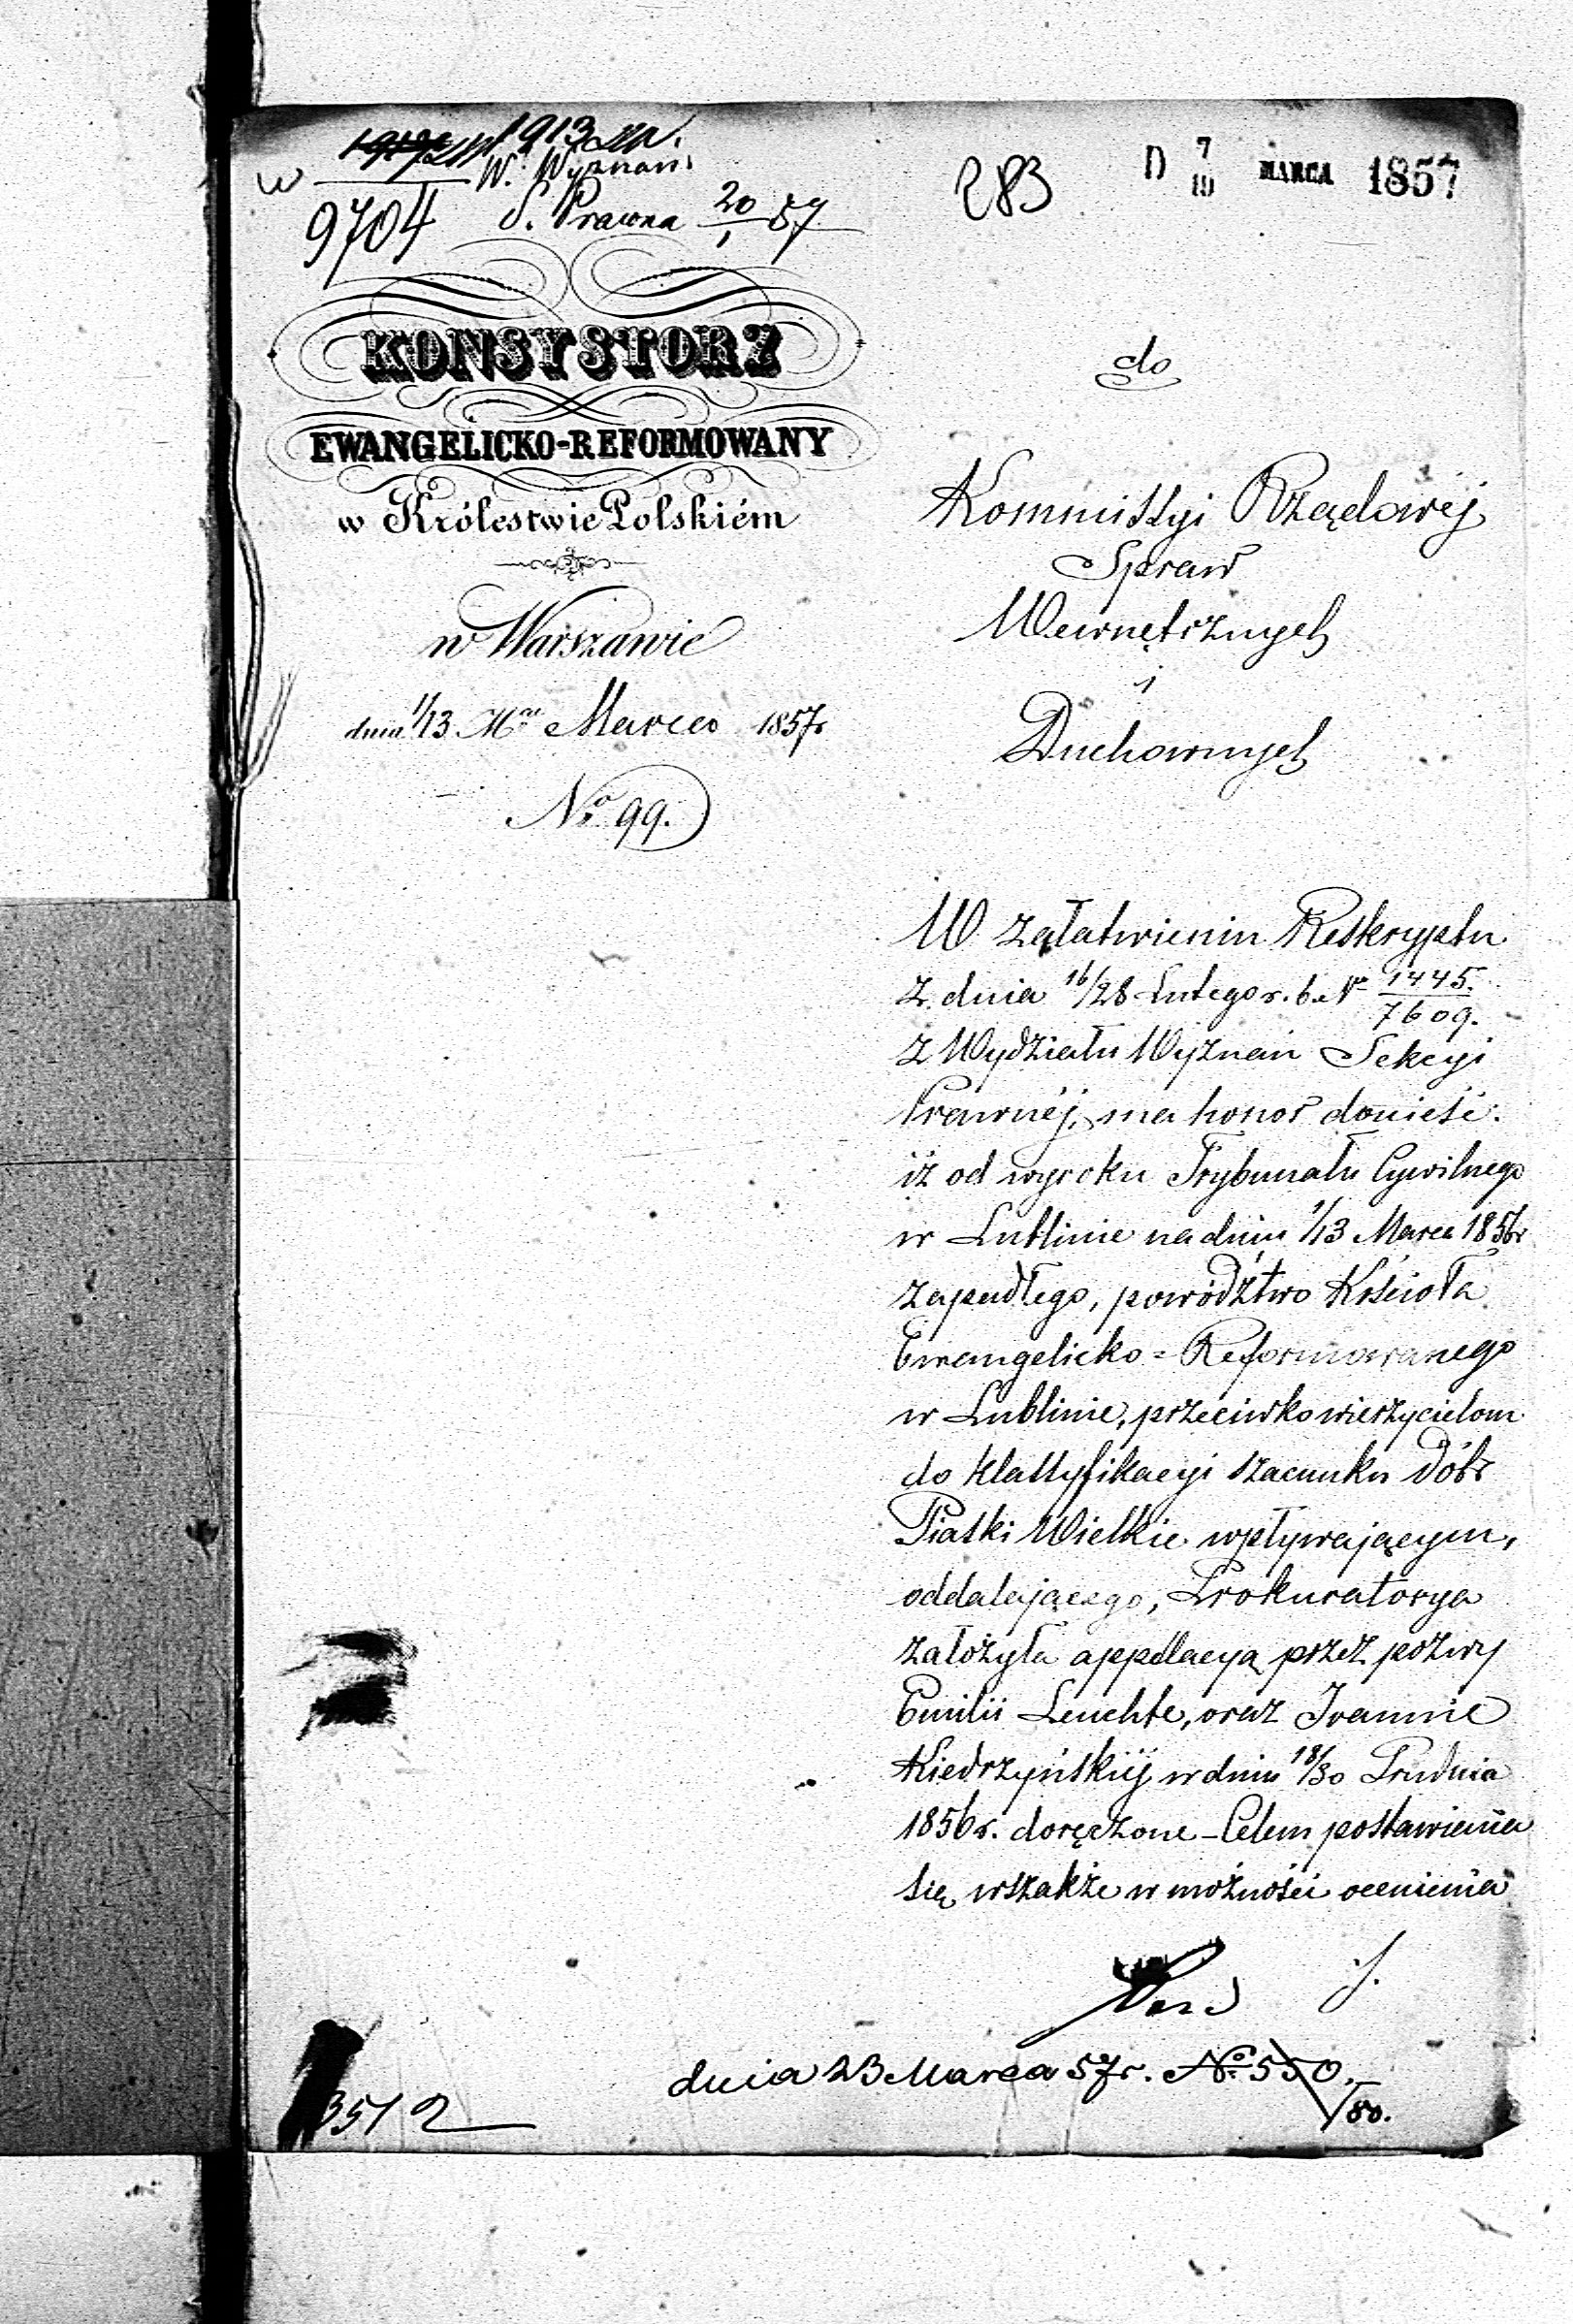 1913
W. Wyznań
w 9704 S. Prawna 20/1 57
283
D 7/19 MARCA 1857
KONSYSTORZ
EWANGELICKO-REFORMOWANY
w Królestwie Polskiém
w Warszawie
dnia 1/13 Mca Marca 1857r
No 99.
do
Kommissyi Rządowéj
Spraw
Wewnętrznych
i
Duchownych
W załatwieniu Reskryptu
z dnia 16/28 Lutego r. b. No 1445./7609.
z Wydziału Wyznań Sekcyi
Prawnéj, ma honor donieść:
iż od wyroku Trybunału Cywilnego
w Lublinie na dniu 1/13 Marca 1856r
zapadłego, powództwo Kościoła
Ewangelicko=Reformowanego
w Lublinie, przeciwko wierzycielom
do klassyfikacyi szacunku dóbr
Piaski Wielkie wpływającym,
oddalającego, Prokuratorya
założyła appellacyą przez pozwy
Emilii Leuchte, oraz Joannie
Kiedrzyńskiéj w dniu 18/30 Grudnia
1856r. doręczone – Celem postawienia
się wszakże w możności ocenienia
dnia 23 Marca 57r. No 550.
/80.
3512